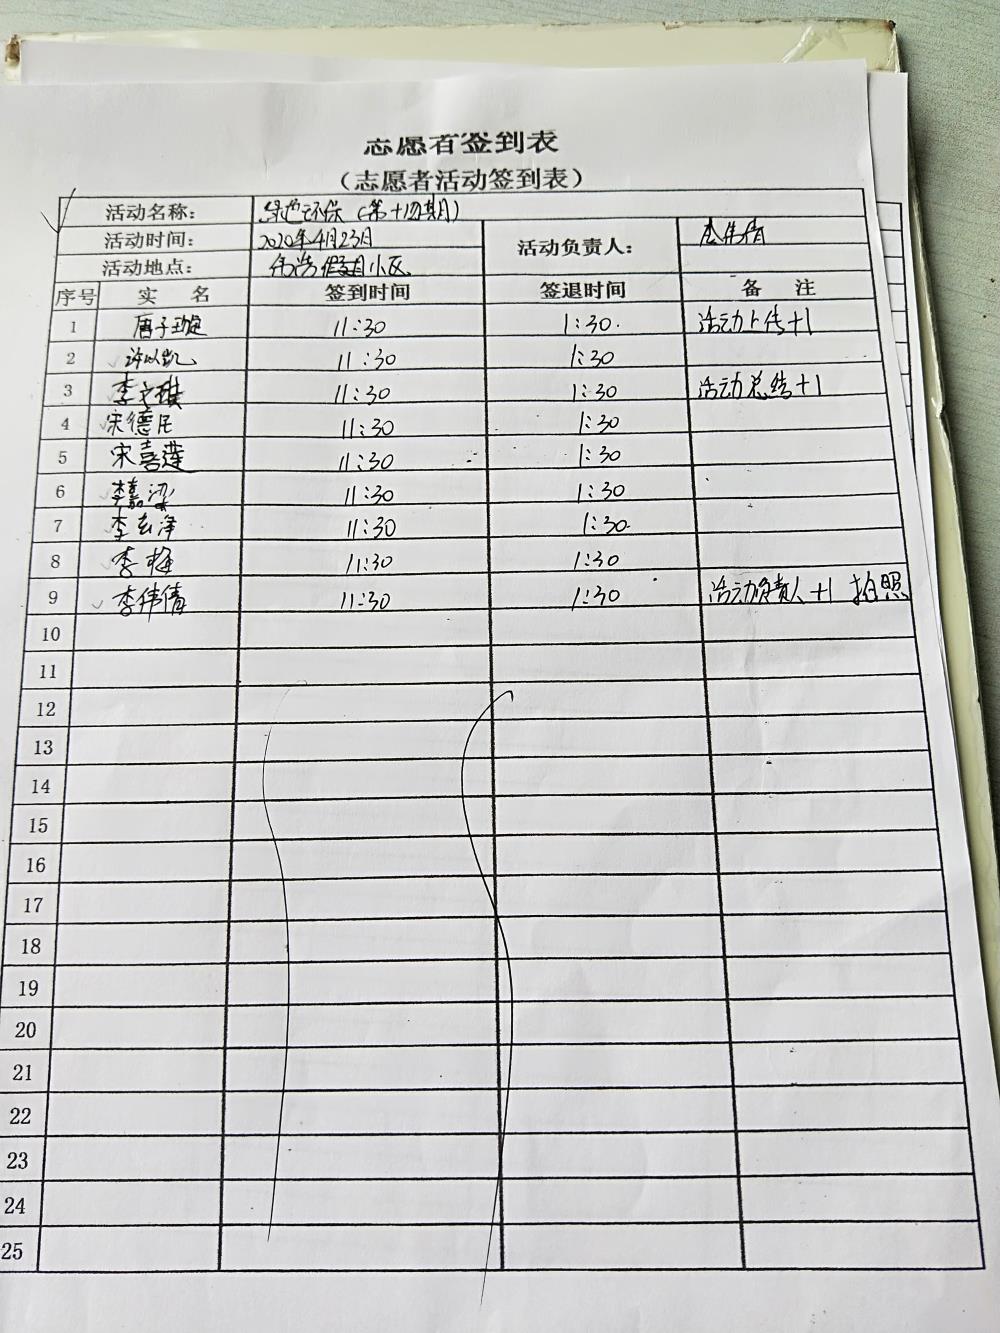 志愿者签到表
（志愿者活动签到表）
活动名称： 绿色环保（第十四期）
活动时间： 2020年4月23日 活动负责人： 李伟倩
活动地点： 伟浩假日小区
序号 实 名 签到时间 签退时间 备 注
1 唐子璇 11:30 1:30. 活动上传+1
2 许以凯 11:30 1:30
3 李文琪 11:30 1:30 活动总结+1
4 宋德民 11:30 1:30
5 宋喜莲 11:30 1:30
6 李嘉梁 11:30 1:30
7 李玄泽 11:30 1:30.
8 李梅 11:30 1:30
9 李伟倩 11:30 1:30 活动负责人+1 拍照
10
11
12
13
14
15
16
17
18
19
20
21
22
23
24
25